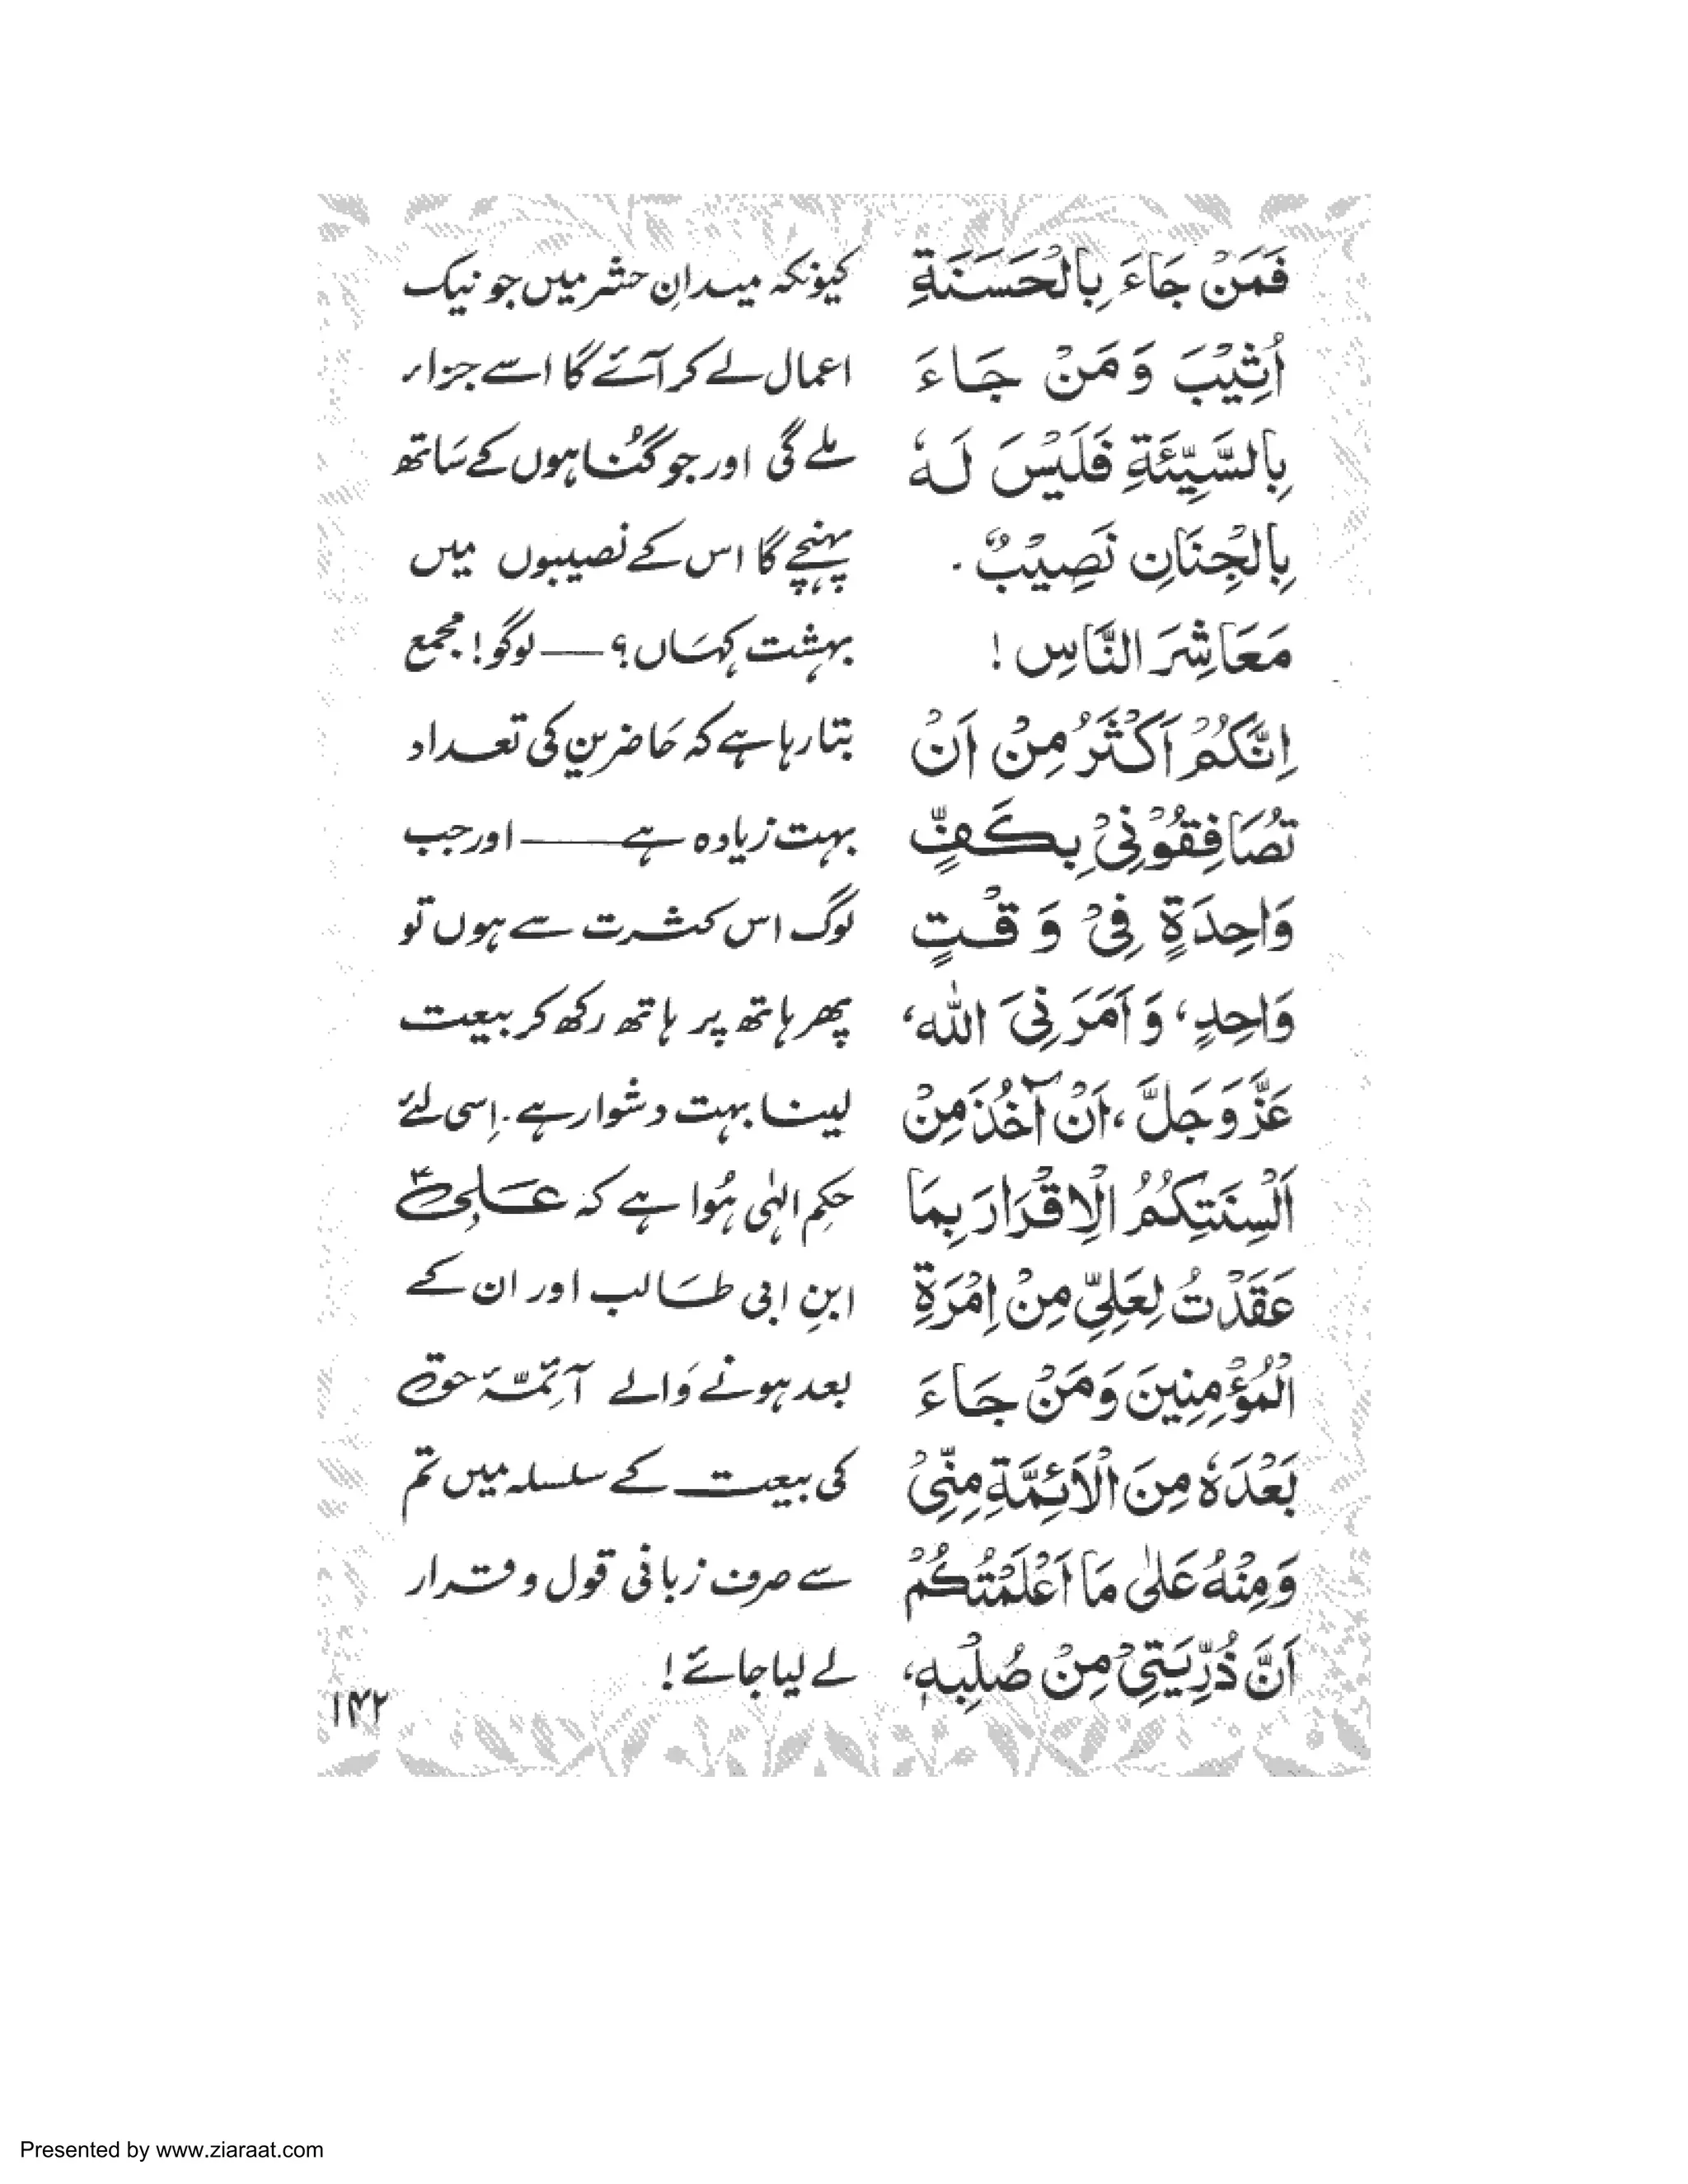 فَمَنْ جَاءَ بِالْحَسَنَةِ
اُثِيْبَ وَمَنْ جَاءَ
بِالسَّيِّئَةِ فَلَيْسَ لَهٗ
بِالْجِنَانِ نَصِيْبٌ.
مَعَاشِرَ النَّاسِ!
اِنَّكُمْ اَكْثَرُ مِنْ اَنْ
تُصَافِقُوْنِیْ بِكَفٍّ
وَاحِدَةٍ فِیْ وَقْتٍ
وَاحِدٍ، وَاَمَرَنِیَ اللهُ،
عَزَّوَجَلَّ، اَنْ آخُذَ مِنْ
اَلْسِنَتِكُمُ الْاِقْرَارَ بِمَا
عَقَدْتُ لِعَلِيٍّ مِنْ اِمْرَةِ
الْمُؤْمِنِينَ وَمَنْ جَاءَ
بَعْدَهٗ مِنَ الْاَئِمَّةِ مِنِّیْ
وَمِنْهُ عَلٰی مَا اَعْلَمْتُكُمْ
اَنَّ ذُرِّيَتِیْ مِنْ صُلْبِهٖ،
کیونکہ میدانِ حشر میں جو نیک
اعمال لے کر آئے گا اسے جزاء
ملے گی اور جو گُناہوں کے سَاتھ
پہنچے گا اس کے نصیبوں میں
بہشت کہَاں؟ — لوگو! مجمع
بتا رہا ہے کہ حَاضرین کی تعداد
بہت زیادہ ہے — اور جب
لوگ اس کثرت سے ہوں تو
پھر ہاتھ پر ہاتھ رکھ کر بیعت
لینا بہت دشوار ہے. اِسی لئے
حکمِ الہٰی ہُوا ہے کہ عَلیؑ
ابنِ ابی طَالب اور ان کے
بعد ہونے وَالے آئِمّہٴ حق
کی بیعت کے سلسلہ میں تم
سے صرف زبانی قول و قرار
لے لیا جائے!
۱۴۲
Presented by www.ziaraat.com